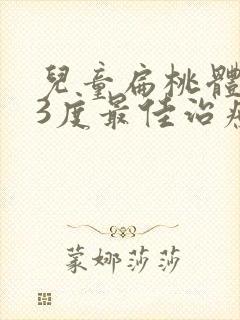 兒童扁桃體
3度最佳治療
蒙娜莎莎